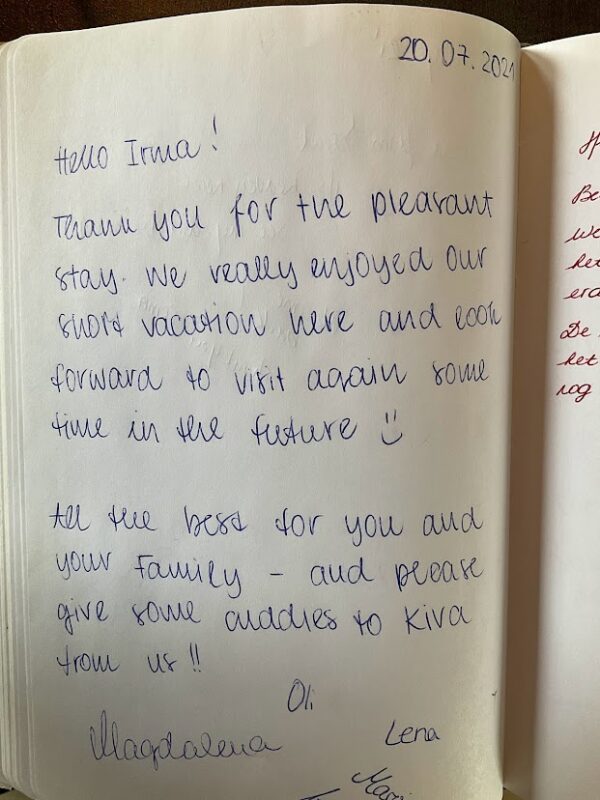 20.07.2021
Hello Irma!
Thank you for the pleasant
stay. We really enjoyed our
short vacation here and look
forward to visit again some
time in the future ☺
All the best for you and
your Family - and please
give some cuddles to Kiva
from us!!
Oli
Magdalena
Lena
Be
we
het
De
het
nog